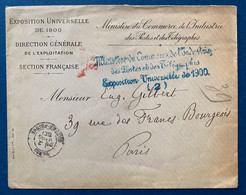 EXPOSITION UNIVERSELLE
DE 1900
DIRECTION GÉNÉRALE
DE L'EXPLOITATION
SECTION FRANÇAISE
Ministère du Commerce, de l'Industrie
des Postes et des Télégraphes
Ministère du Commerce de l'Industrie
des Postes et des Télégraphes
Exposition Universelle de 1900
(2)
Monsieur Eug. Gilbert
39 rue des Francs Bourgeois
Paris